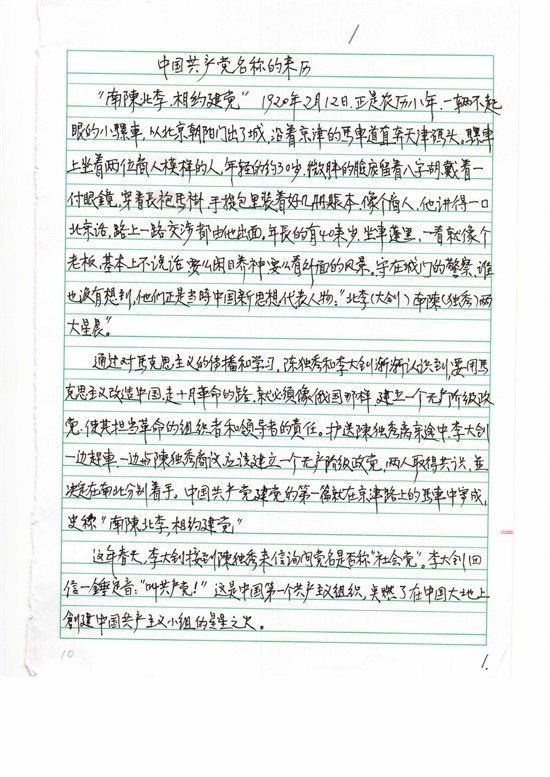 1
中国共产党名称的来历
"南陳北李，相约建党" 1920年2月12日，正是农历小年，一辆不起
眼的小騾車，从北京朝阳门出了城，沿着京津的馬車道直奔天津码头。騾車
上坐着两位商人模样的人，年轻的约30岁，微胖的脸庞留着八字胡，戴着一
付眼鏡，穿着長袍馬褂，手提包里装着好几册賬本，像个商人，他讲得一口
北京话，路上一路交涉都由他出面。年長的有40来岁，坐車蓬里，一看就像个
老板，基本上不说话，要么闲目养神，要么看外面的风景。守在城门的警察，谁
也没有想到，他们正是当時中国新思想代表人物："北李(大剑)南陳(独秀)两
大星晨"。
通过对馬克思主义的传播和学习，陈独秀和李大钊渐渐认识到，要用馬
克思主义改造中国，走十月革命的路，就必须像俄国那样，建立一个无产阶级政
党，使其担当革命的组织者和领导者的责任。护送陳独秀离京途中，李大钊
一边赶車，一边与陳独秀商议，应该建立一个无产阶级政党，两人取得共识，並
决定在南北分别着手。中国共产党建党的第一篇就在京津路上的馬車中写成，
史称"南陳北李，相约建党"
这年春天，李大钊接到陳独秀来信询问党名是否称"社会党"。李大钊回
信一錘定音："叫共产党！" 这是中国第一个共产主义组织，点燃了在中国大地上
創建中国共产主义小组的星星之火。
10
1.